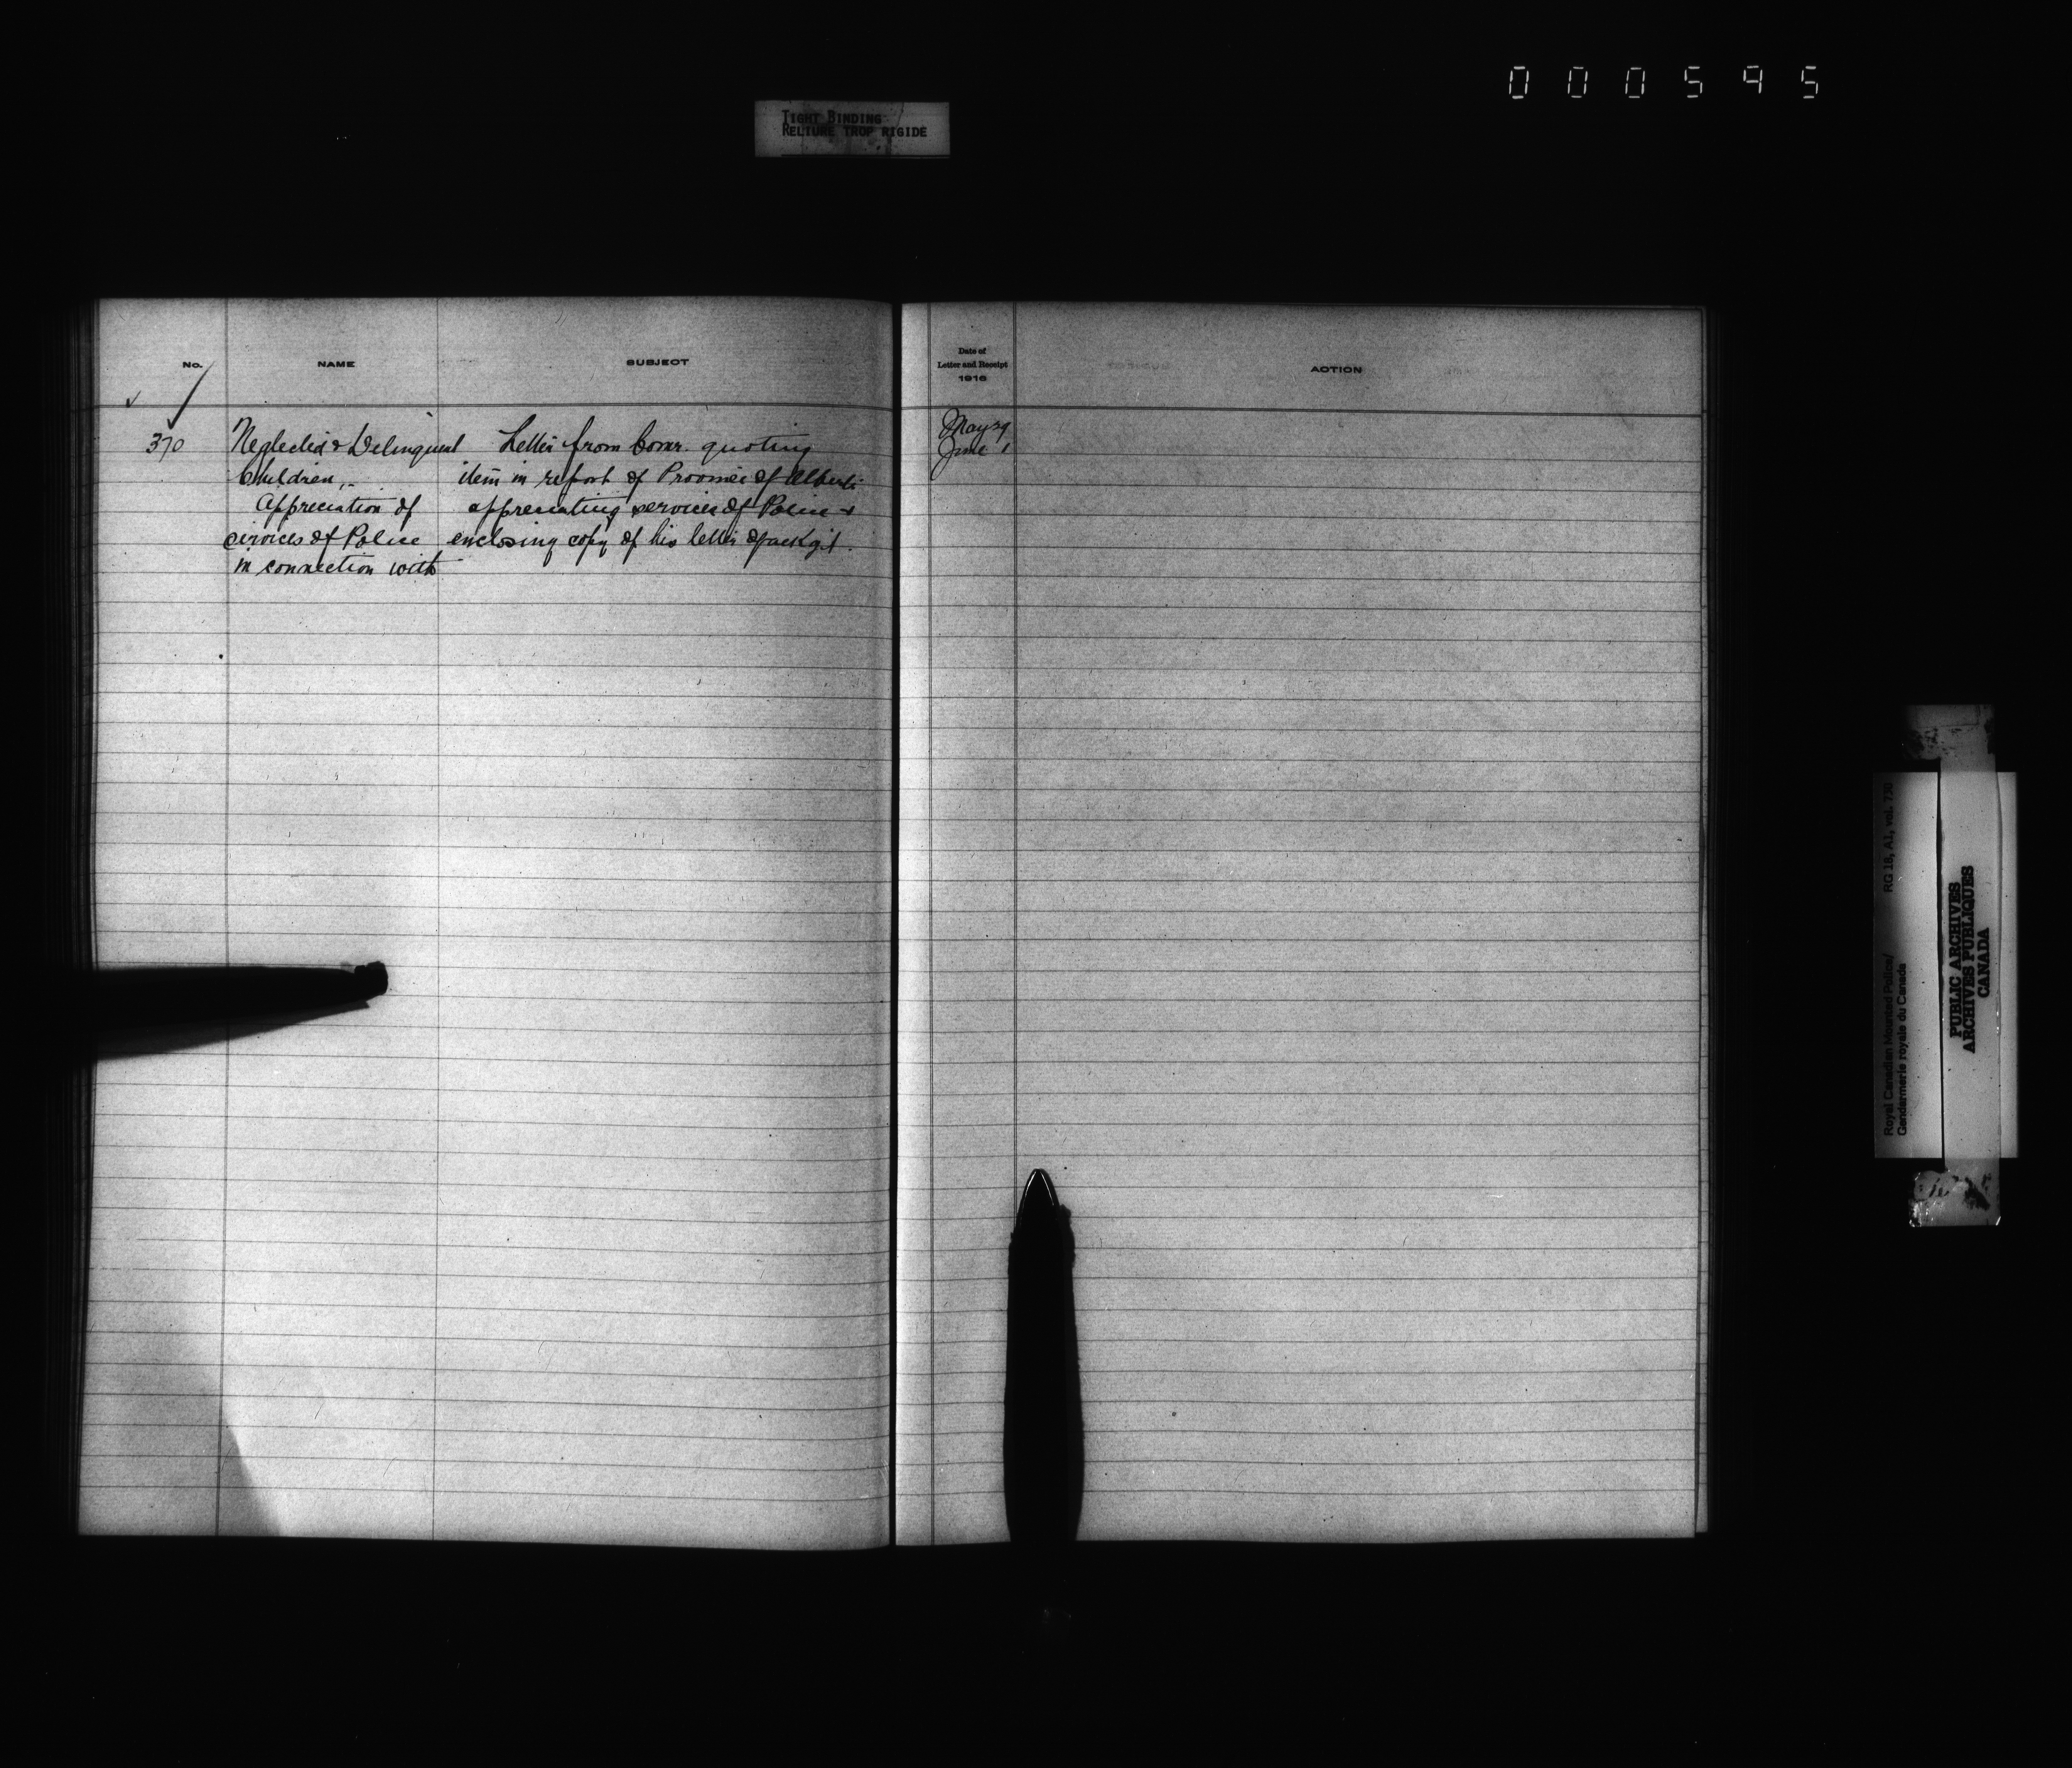 000595
TIGHT BINDING
RELIURE TROP RIGIDE
No.
NAME
SUBJECT
Date of
Letter and Receipt
1916
ACTION
370
Neglected & Delinquent
Children,
Appreciation of
services of Police
in connection with
Letter from Comr. quoting
item in report of Province of Alberta
appreciating services of Police &
enclosing copy of his letter of ackgt.
May 29
June 1
Royal Canadian Mounted Police/
Gendarmerie royale du Canada
RG 18, A1, vol. 730
PUBLIC ARCHIVES
ARCHIVES PUBLIQUES
CANADA